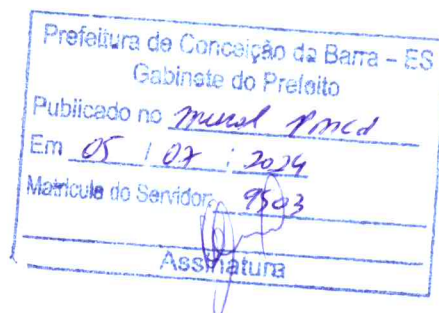 Prefeitura de Conceição da Barra – ES
Gabinete do Prefeito
Publicado no mural PMCB
Em 05 / 07 / 2024
Matrícula do Servidor: 9503
Assinatura